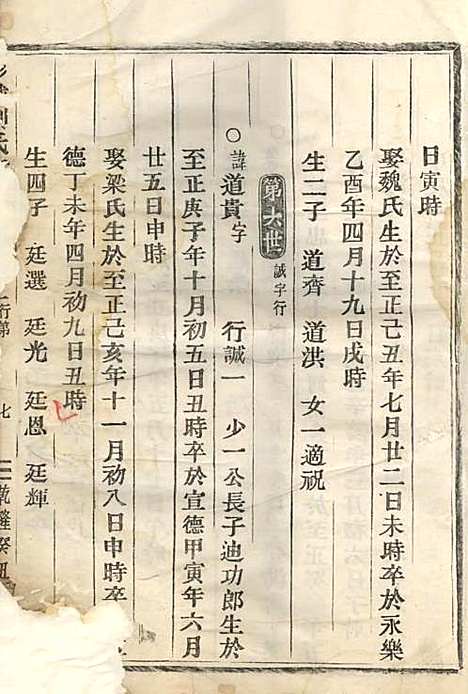 日寅時
娶魏氏生於至正己丑年七月廿二日未時卒於永樂
乙酉年四月十九日戌時
生二子 道齊 道洪 女一適祝
第六世 誠字行
○諱道貴字 行誠一 少一公長子迪功郎生於
至正庚子年十月初五日丑時卒於宣德甲寅年六月
廿五日申時
娶梁氏生於至正己亥年十一月初八日申時卒
德丁未年四月初九日丑時
生四子 廷選 廷光 廷恩 廷輝
氏 行第 七 乾隆癸丑